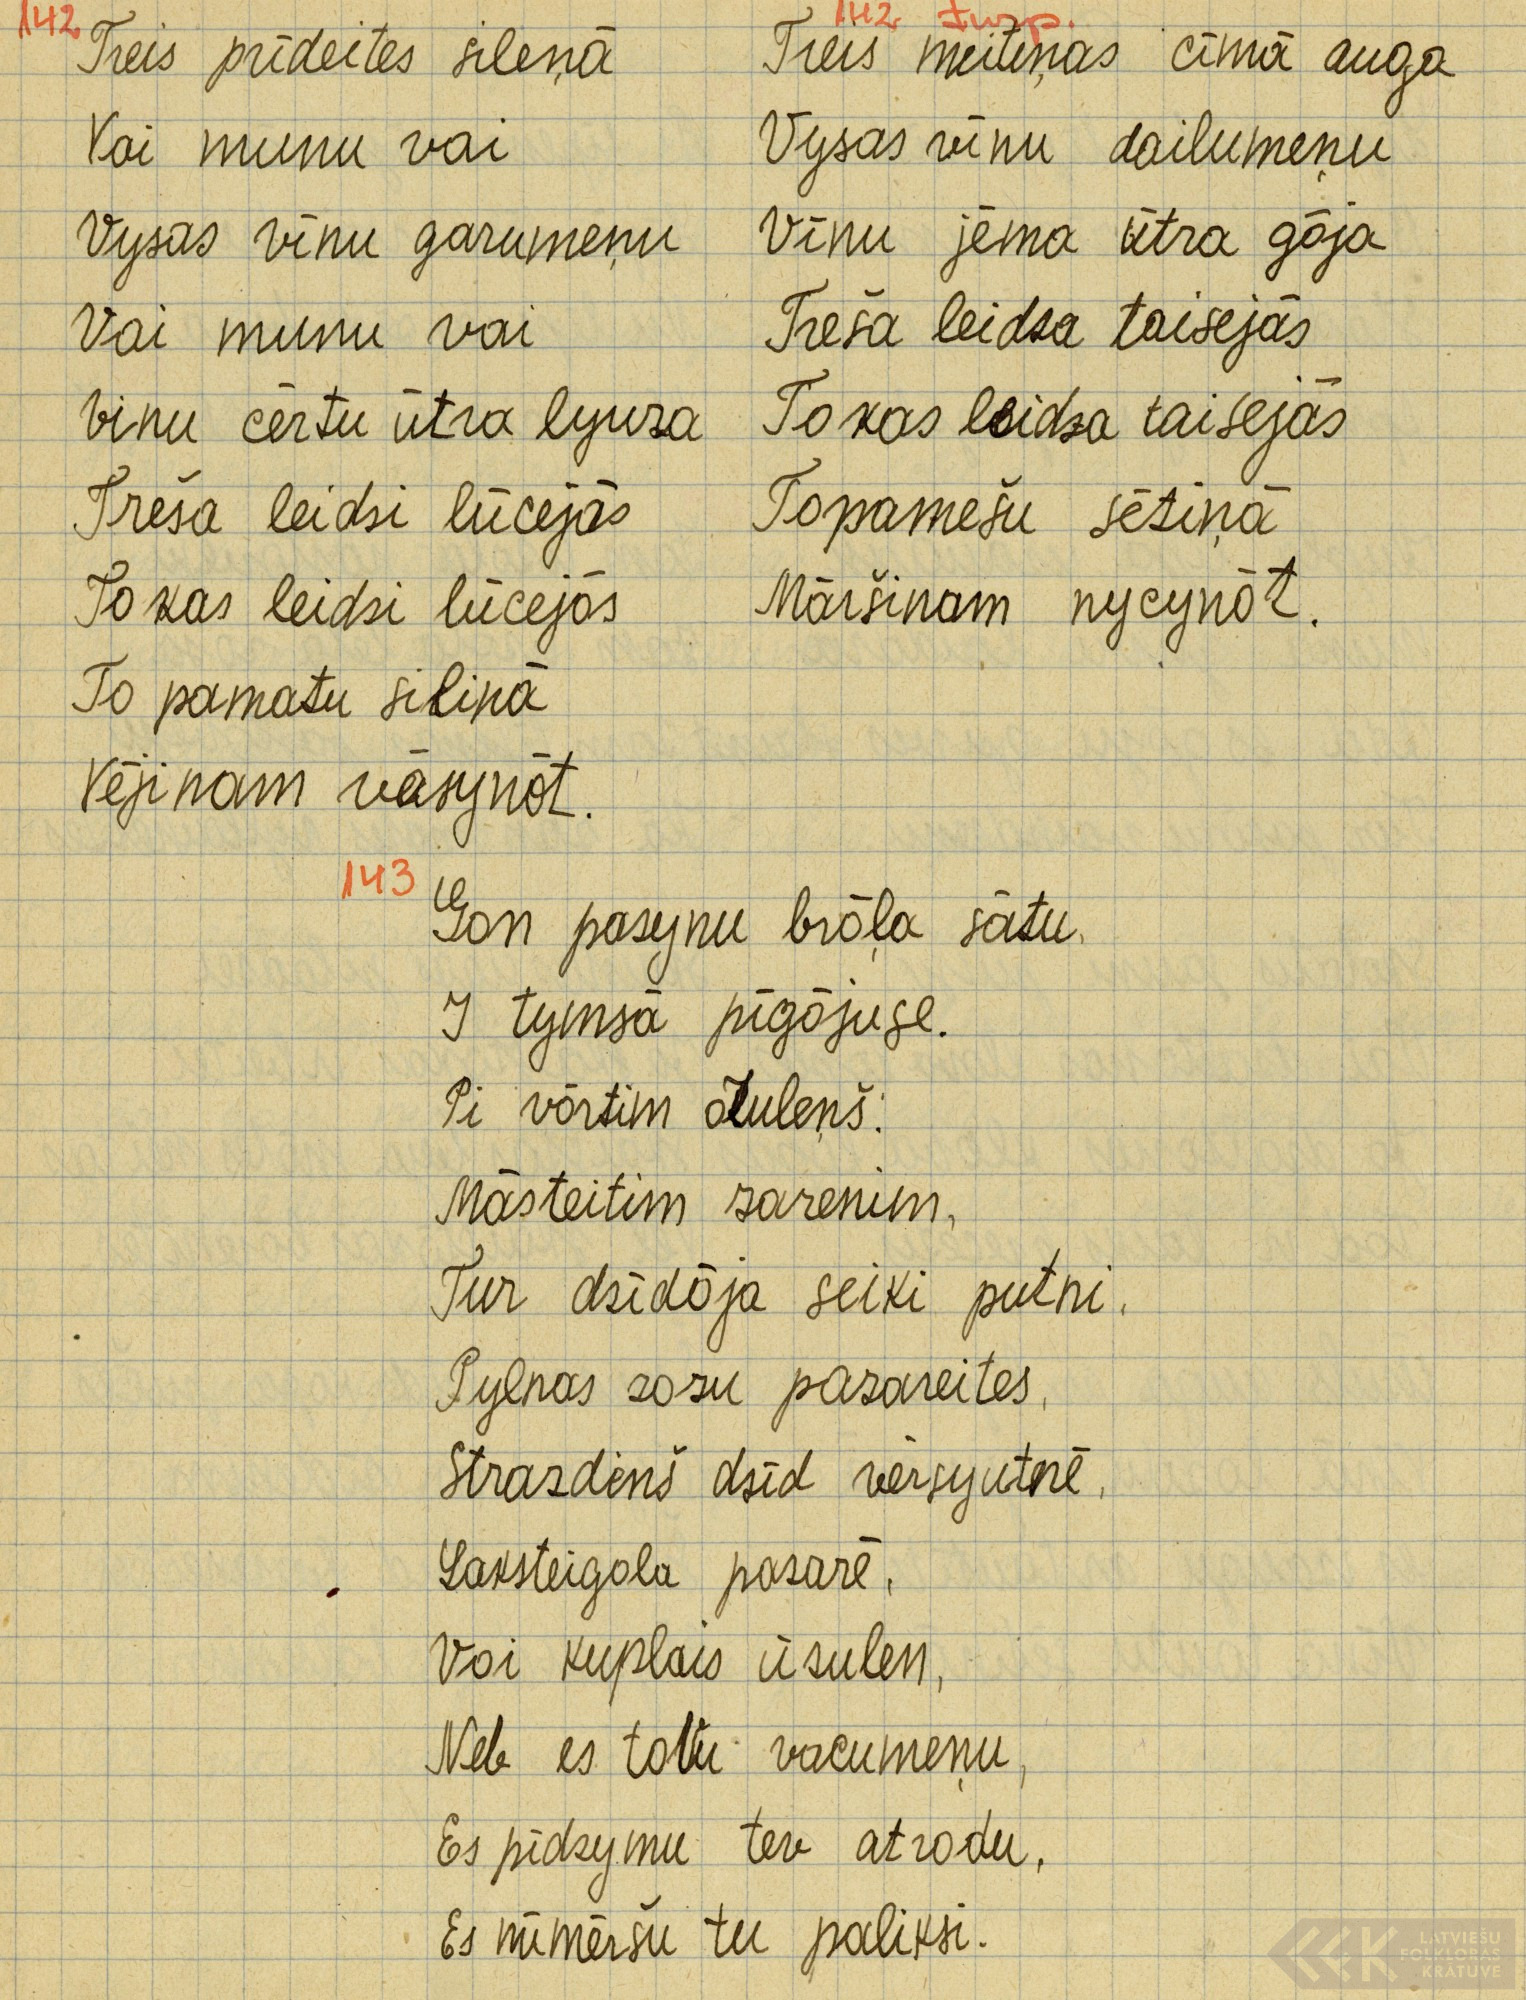 142
Treis prīdeites sileņā
Vai munu vai
Vysas vīnu garumeņu
Vai munu vai
vinu cērtu ūtra lyuza
Treša leidzi lūcejās
To kas leidzi lūcejōs
To pamatu siliņā
Vējinam vāsynōt.
142 turp.
Treis meiteņas cīmā auga
Vysas vīnu dailumeņu
Vīnu jēma ūtra gōja
Treša leidza taisejās
To kas leidza taisejās
To pamešu sētiņā
Māršinam nycynōt.
143
Gon pazynu brōļa sātu,
I tymsā pīgōjuse.
Pi vōrtim ōzuleņš:
Māsteitim zarenim,
Tur dzīdōja seiki putni,
Pylnas zozu pazareites,
Strazdeņš dzīd vērsyutnē,
Laksteigola pazarē,
Voi kuplais ūzulen,
Neb es tovu vacumeņu,
Es pīdzymu tev atrodu,
Es nūmēršu tu paliksi.
LATVIEŠU
FOLKLORAS
KRĀTUVE